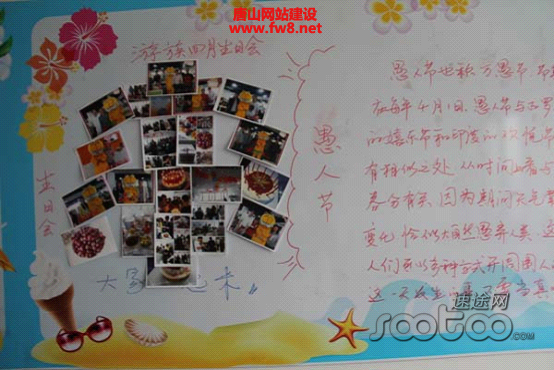 唐山网站建设
www.fw8.net
游族四月生日会
生日会
愚人节
愚人节也称万愚节
在每年4月1日,愚人节与古罗
的嬉乐节和印度的欢悦节
有相似之处,从时间上看与
春分有关,因为期间天气常
变化,恰似大自然愚弄人类,这
人们可以各种方式开周围人
这一天发生的事,不要当真
大家
来
速途网
sootoo
.com